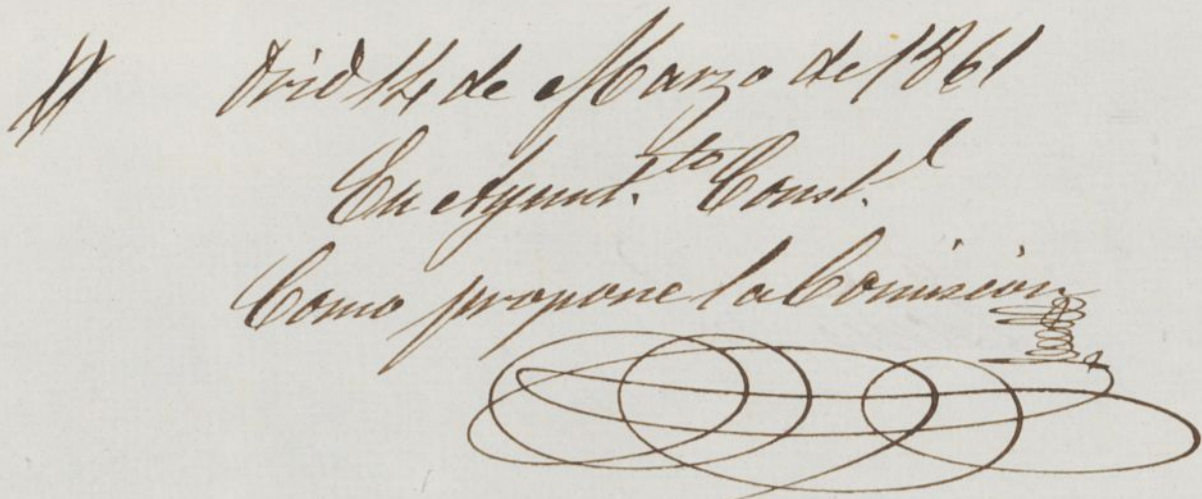 M drid 14 de Marzo de 1861
En Ayunt.to Const.l
Como propone la Comision